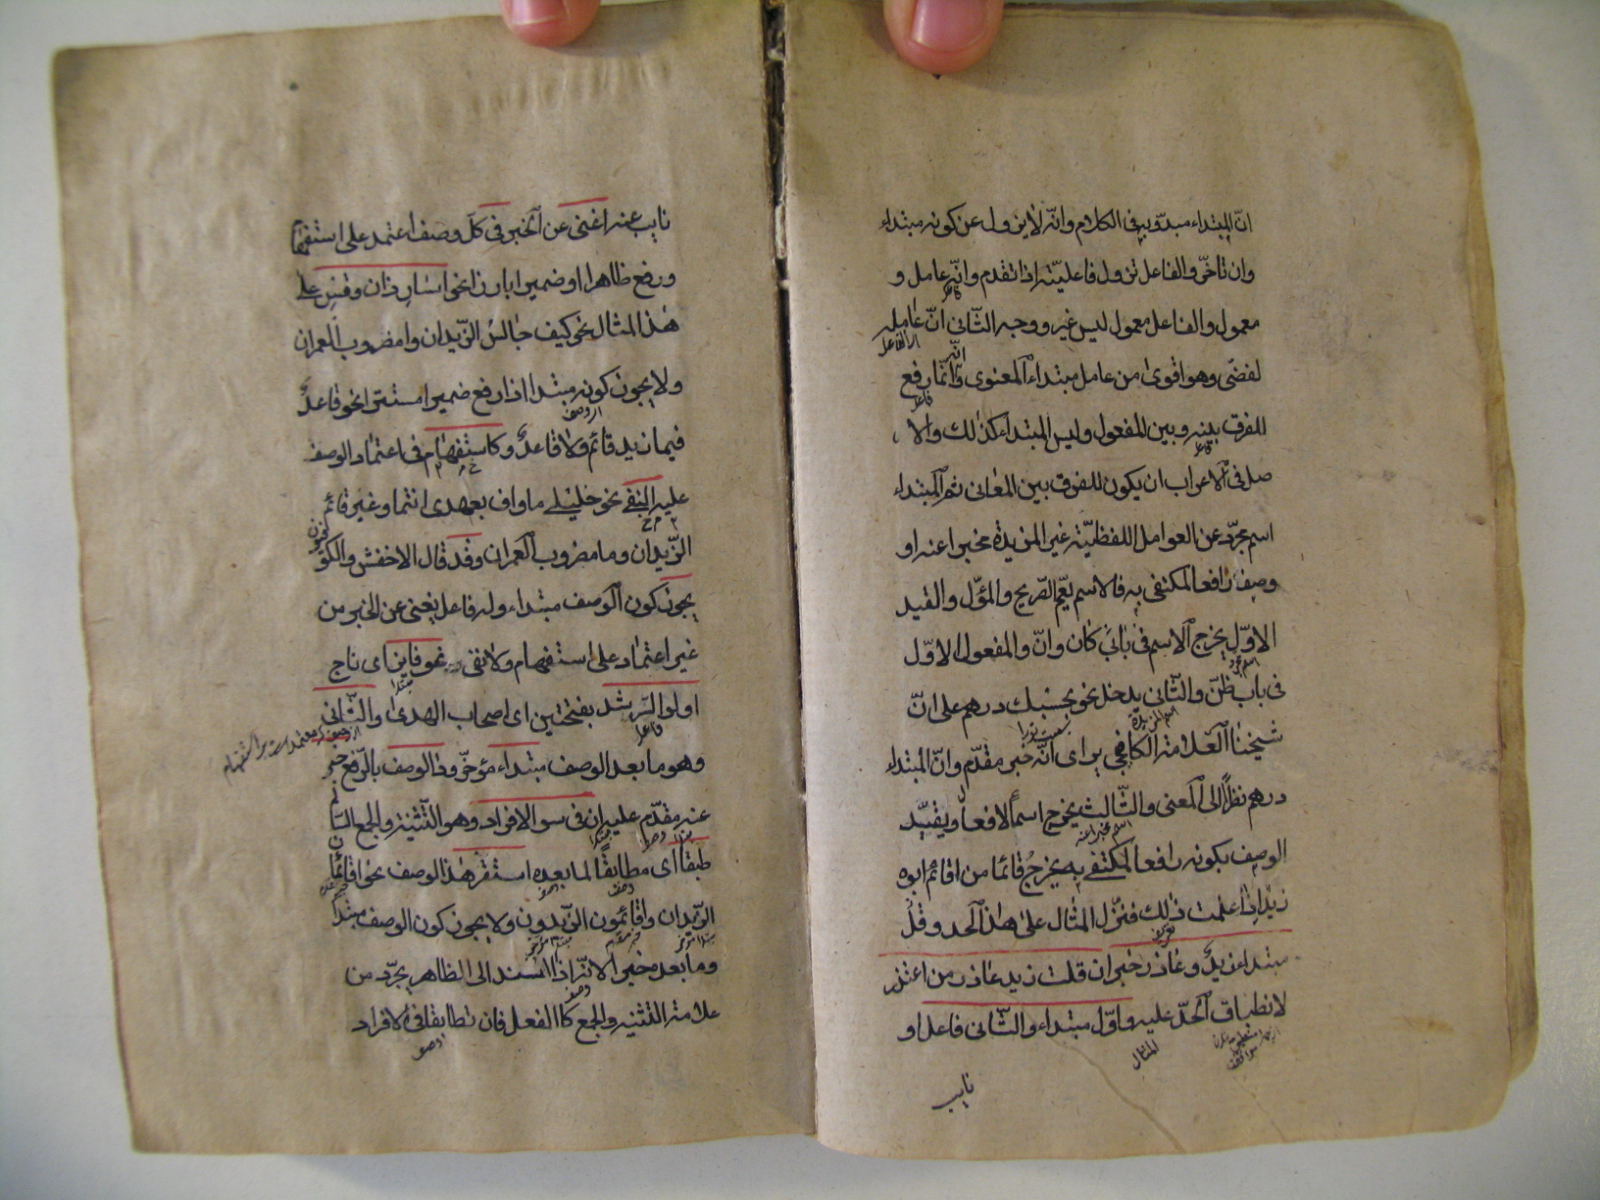 انّ المبتداء مبدوّ به فى الكلام وانّه لا يزول عن كونه مبتداء
وان تاخّر والفاعل تزول فاعليّته اذا تقدم وانّه عامل و
معمول والفاعل معمول ليس غير ووجه الثّانى انّ عامله
لفضى وهو اقوى من عامل مبتداء المعنوى وانّه انّما رفع
للفرق بينه وبين المفعول وليس المبتداء كذلك والا
صل فى الاعراب ان يكون للفرق بين المعانى ثم المبتداء
اسم مجرّد عن العوامل اللفظيّة غير المزيدة مخبرا عنه او
وصف رافعا لمكتفى به فالاسم يعّم الصّريح والمؤل والقيد
الاوّل يخرج الاسم فى بابَي كان وانّ والمفعول الاوّل
فى باب ظنّ والثّانى يدخل نحو بحسبك درهم على انّ
شيخنا العّلامة الكافيجى يرى انّه خبر مقدّم وانّ المبتداء
درهم نظراً الى المعنى والثّالث يخرج اسماء الافعال ويقيّد
الوصف بكونه رافعا لمكتفى به يخرجُ قائما من اقائم ابوه
زيد اذا علمت ذلك فنزّل المثال على هذا الحد وقل
مبتداء زيدٌ وعاذر خبر ان قلت زيد عاذر من اعتذر
لانطباق الحدّ عليه واوّل مبتداء والثّانى فاعل او
المثال
نايب
نايب عنه اغنى عن الخبر فى كلّ وصف اعتمد على استفهام
ورفع ظاهرا او ضميرا بارزا نحو اسارٍ ذان وقس على
هذا المثال نحو كيف جالسٌ الزّيدان وامضروب العمران
ولا يجوز كونه مبتدا اذا رفع ضميرا مستترا نحو قاعدٌ
فيما زيد قائم ولا قاعدٌ وكاستفهام فى اعتماد الوصف
عليه النفى نحو خليلى ما واف بعهدى انتما وغير قائم
الزّيدان وما مضروب العمران وقد قال الاخفش والكو
فيون
يجوز كون الوصف مبتداء وله فاعل يغنى عن الخبر من
غير اعتماد على استفهام ولا نفى نحو فايز اى ناج
مبتدا
اولو الرّشد بفتحتين اى اصحاب الهدى والثّانى
فاعل
وهو ما بعد الوصف مبتداء مؤخّر وذا الوصف بالرّفع خبر
عنه مقدّم عليه ان فى سوى الافراد وهو التّثنية والجمع السّا
لم
طبقاً اى مطابقًا لما بعده استقرّ هذا الوصف نحو اقائمان
الزّيدان واقائمون الزّيدون ولا يجوز كون الوصف مبتدا
وما بعد مخبرا لانّه اذا اسند الى الظاهر يجرّد من
علامة التثنيه والجمع كاالفعل فان تطابقا فى الافراد